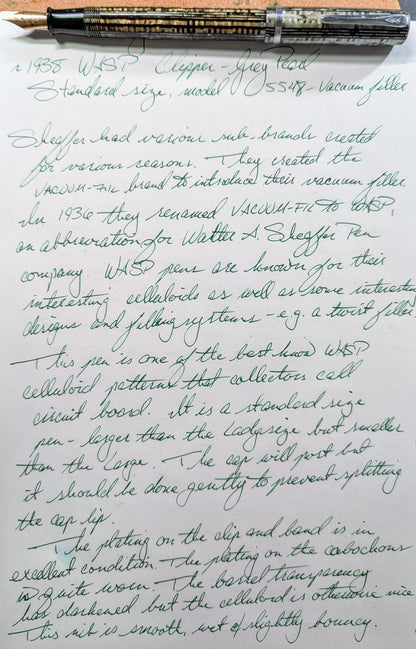 ~1938 WASP Clipper - Grey Pearl
Standard size, model SS48 - Vacuum filler
Sheaffer had various sub-brands created
for various reasons. They created the
VACUUM-FIL brand to introduce their vacuum filler.
In 1936 they renamed VACUUM-FIL to WASP,
an abbreviation for Walter A. Sheaffer Pen
company. WASP pens are known for their
interesting celluloids as well as some interesting
designs and filling systems - e.g. a twist filler.
This pen is one of the best know WASP
celluloid patterns that collectors call
circuit board. It is a standard size
pen - larger than the Ladysize but smaller
than the Large. The cap will post but
it should be done gently to prevent splitting
the cap lip.
The plating on the clip and band is in
excellent condition. The plating on the cabochons
is quite worn. The barrel transparency
has darkened but the celluloid is otherwise nice
This nib is smooth, wet & slightly bouncy.